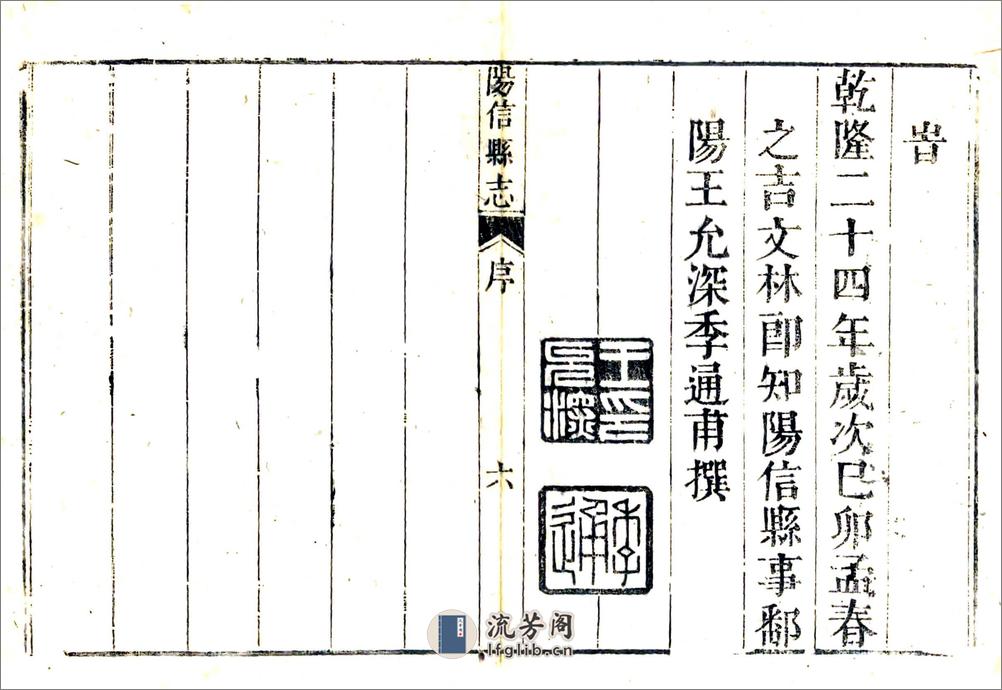 旹
乾隆二十四年歲次己卯孟春
之吉文林郎知陽信縣事鄱
陽王允深季通甫撰
王印允深
季通
陽信縣志
序
六
流芳阁
lfglib.cn